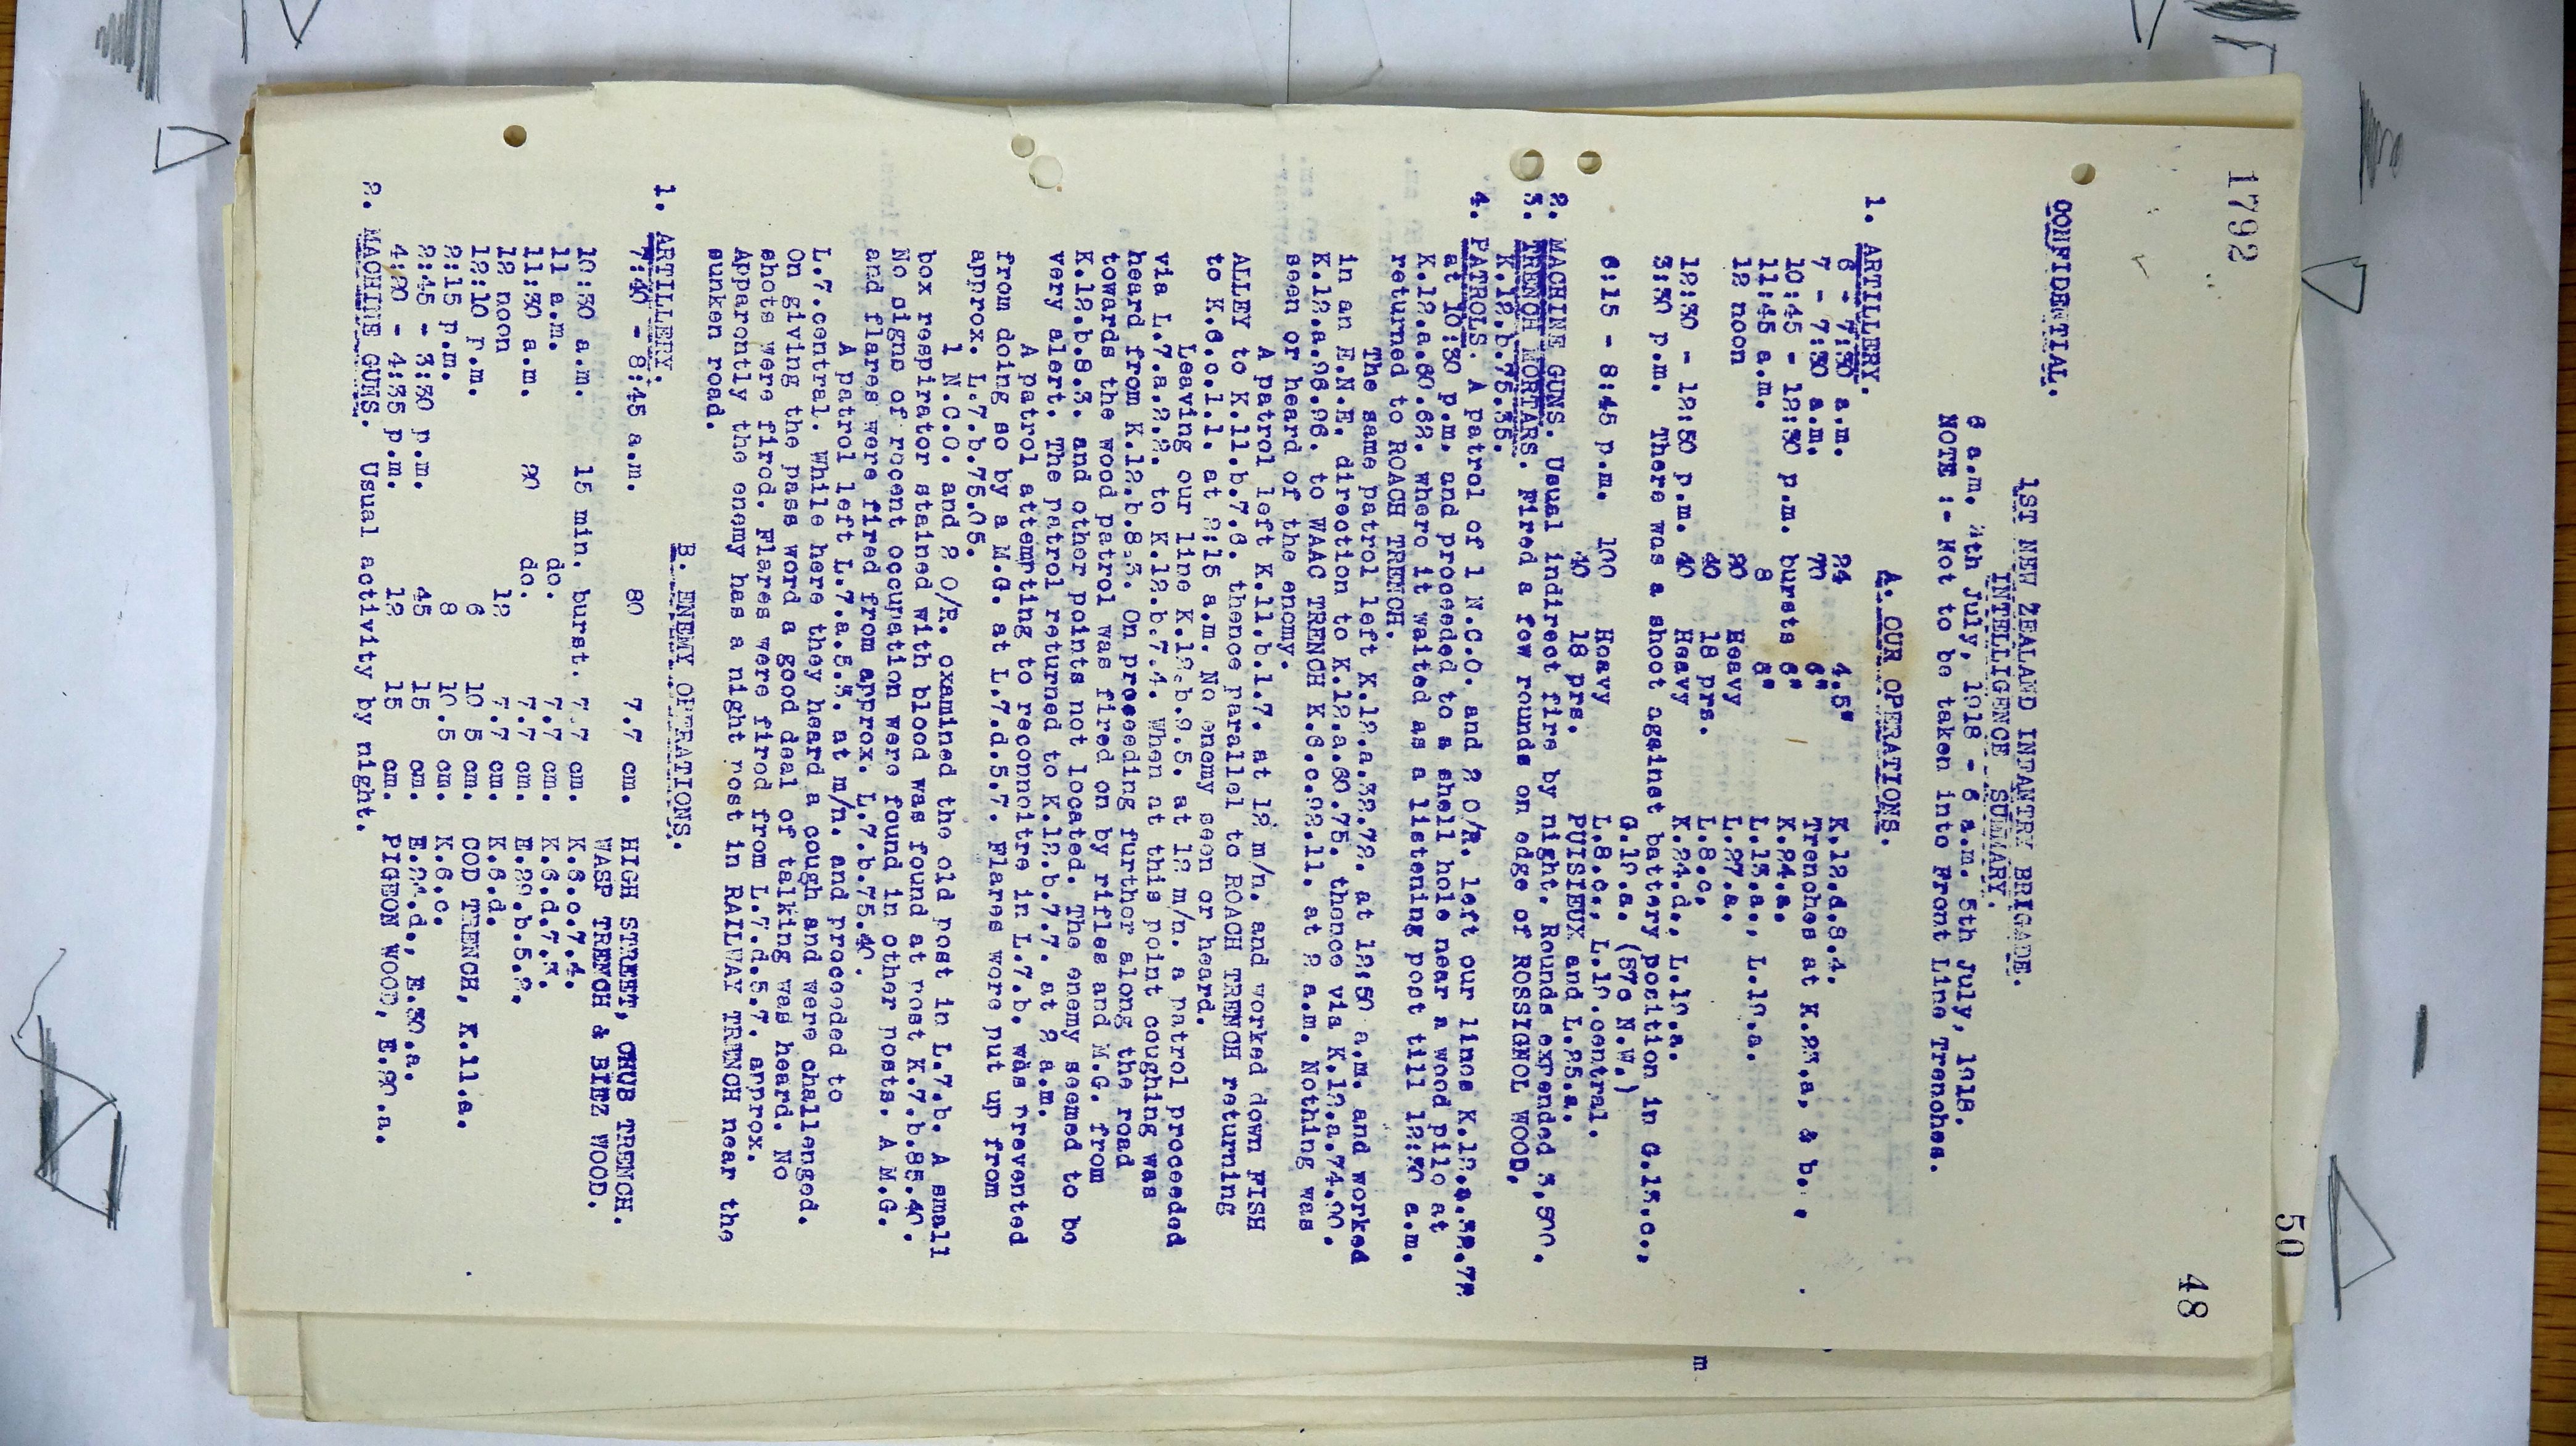 1792
50
48
CONFIDENTIAL.
1ST NEW ZEALAND INFANTRY BRIGADE.
INTELLIGENCE SUMMARY.
6 a.m. 4th July, 1918 - 6 a.m. 5th July, 1918.
NOTE :- Not to be taken into Front Line Trenches.
A. OUR OPERATIONS.
1. ARTILLERY.
6 - 7:30 a.m. 24 4.5" K.12.d.8.4.
7 - 7:30 a.m. 70 6" Trenches at K.23.a, & b.
10:45 - 12:30 p.m. bursts 6" K.24.a.
11:45 a.m. 8 8" L.13.a., L.10.a.
12 noon 20 Heavy L.27.a.
40 18 prs. L.8.c.
12:30 - 12:50 p.m. 40 Heavy K.24.d., L.10.a.
3:30 p.m. There was a shoot against battery position in G.13.c.,
G.10.a. (570 N.W.)
6:15 - 8:45 p.m. 100 Heavy L.8.c., L.10.central.
40 18 prs. PUISIEUX and L.25.a.
2. MACHINE GUNS. Usual indirect fire by night. Rounds expended 3,500.
3. TRENCH MORTARS. Fired a few rounds on edge of ROSSIGNOL WOOD,
K.12.b.75.35.
4. PATROLS. A patrol of 1 N.C.O. and 2 O/R. left our lines K.12.a.32.72
at 10:30 p.m. and proceeded to a shell hole near a wood pile at
K.12.a.60.62. where it waited as a listening post till 12:30 a.m.
returned to ROACH TRENCH.
The same patrol left K.12.a.32.72. at 12:50 a.m. and worked
in an E.N.E. direction to K.12.a.60.75. thence via K.12.a.74.90.
K.12.a.96.96. to WAAC TRENCH K.6.c.92.11. at 2 a.m. Nothing was
seen or heard of the enemy.
A patrol left K.11.b.1.7. at 12 m/n. and worked down FISH
ALLEY to K.11.b.7.6. thence parallel to ROACH TRENCH returning
to K.6.c.1.1. at 2:15 a.m. No enemy seen or heard.
Leaving our line K.12.b.9.5. at 12 m/n. a patrol proceeded
via L.7.a.2.2. to K.12.b.7.4. When at this point coughing was
heard from K.12.b.8.3. On proceeding further along the road
towards the wood patrol was fired on by rifles and M.G. from
K.12.b.8.3. and other points not located. The enemy seemed to be
very alert. The patrol returned to K.12.b.7.7. at 2 a.m.
A patrol attempting to reconnoitre in L.7.b. was prevented
from doing so by a M.G. at L.7.d.5.7. Flares were put up from
approx. L.7.b.75.05.
1 N.C.O. and 2 O/R. examined the old post in L.7.b. A small
box respirator stained with blood was found at post K.7.b.85.40.
No signs of recent occupation were found in other posts. A M.G.
and flares were fired from approx. L.7.b.75.40.
A patrol left L.7.a.5.3. at m/n. and proceeded to
L.7.central. While here they heard a cough and were challenged.
On giving the pass word a good deal of talking was heard. No
shots were fired. Flares were fired from L.7.d.5.7. approx.
Apparently the enemy has a night post in RAILWAY TRENCH near the
sunken road.
B. ENEMY OPERATIONS.
1. ARTILLERY.
7:40 - 8:45 a.m. 80 7.7 cm. HIGH STREET, CHUB TRENCH.
WASP TRENCH & BIEZ WOOD.
10:30 a.m. 15 min. burst. 7.7 cm. K.6.c.7.4.
11 a.m. do. 7.7 cm. K.6.d.7.3.
11:30 a.m. 20 do. 7.7 cm. E.29.b.5.2.
12 noon 12 7.7 cm. K.6.d.
12:10 p.m. 6 10 5 cm. COD TRENCH, K.11.a.
2:15 p.m. 8 10.5 cm. K.6.c.
2:45 - 3:30 p.m. 45 15 cm. E.24.d., E.30.a.
4:20 - 4:35 p.m. 12 15 cm. PIGEON WOOD, E.20.a.
2. MACHINE GUNS. Usual activity by night.
m